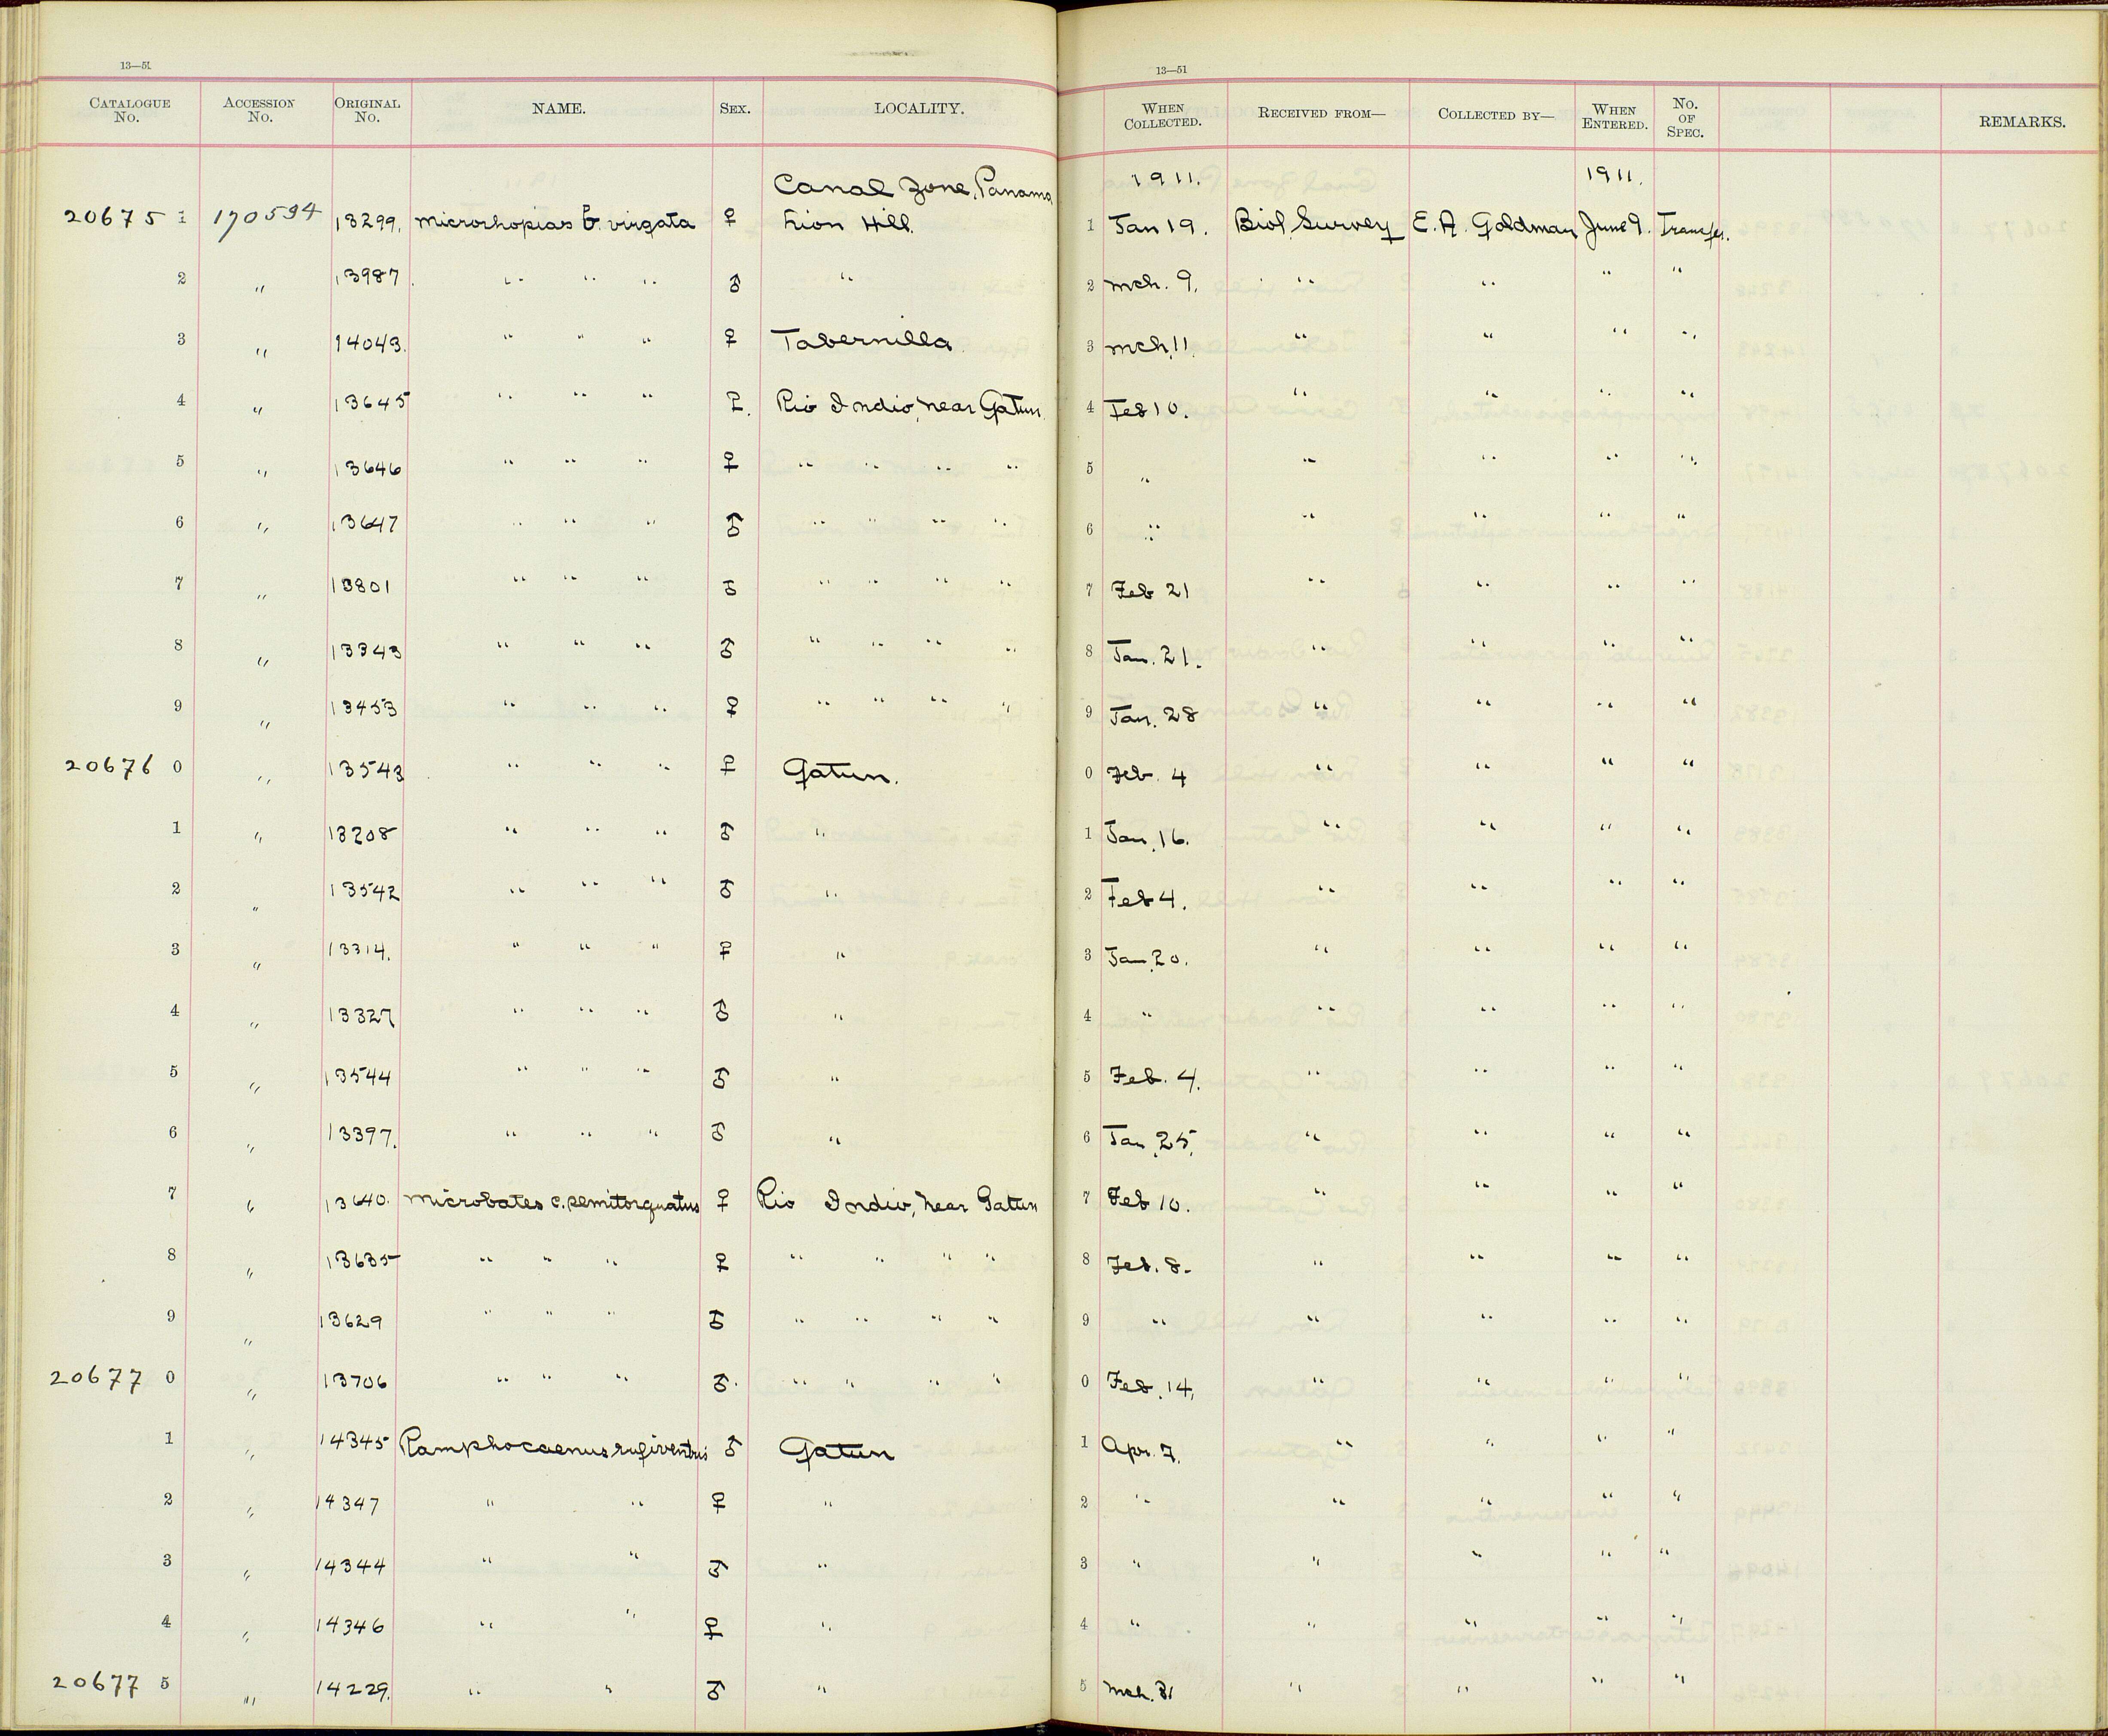 13—51
13—51
CATALOGUE No. ACCESSION No. ORIGINAL No. NAME. SEX. LOCALITY. WHEN COLLECTED. RECEIVED FROM— COLLECTED BY— WHEN ENTERED. No. OF SPEC. REMARKS.
Canal Zone, Panama 1911. 1911.
20675 1 170594 13299. Microrhopias b. virgata ♀ Lion Hill. 1 Jan 19. Biol. Survey E. A. Goldman June 9. Transfer.
2 " 13987 " " " ♂ " 2 Mch. 9. " " " "
3 " 14043. " " " ♀ Tabernilla. 3 Mch. 11. " " " "
4 " 13645 " " " ♀. Rio Indio, near Gatun. 4 Feb 10. " " " "
5 " 13646 " " " ♀ " " " " 5 " " " " "
6 " 13647 " " " ♂ " " " " 6 " " " " "
7 " 13801 " " " ♂ " " " " 7 Feb 21 " " " "
8 " 13343 " " " ♂ " " " " 8 Jan. 21. " " " "
9 " 13453 " " " ♀ " " " " 9 Jan. 28 " " " "
20676 0 " 13543 " " " ♀ Gatun. 0 Feb. 4 " " " "
1 " 13208 " " " ♂ " 1 Jan. 16. " " " "
2 " 13542 " " " ♂ " 2 Feb 4. " " " "
3 " 13314. " " " ♀ " 3 Jan. 20. " " " "
4 " 13327 " " " ♂ " 4 " " " " "
5 " 13544 " " " ♂ " 5 Feb. 4. " " " "
6 " 13397. " " " ♂ " 6 Jan. 25. " " " "
7 " 13640. Microbates c. semitorquatus ♀ Rio Indio, near Gatun 7 Feb 10. " " " "
8 " 13635 " " " ♀ " " " " 8 Feb. 8. " " " "
9 " 13629 " " " ♂ " " " " 9 " " " " "
20677 0 " 13706 " " " ♂. " " " " 0 Feb. 14. " " " "
1 " 14345 Ramphocaenus rufiventris ♂ Gatun 1 Apr. 7. " " " "
2 " 14347 " " ♀ " 2 " " " " "
3 " 14344 " " ♂ " 3 " " " " "
4 " 14346 " " ♀ " 4 " " " " "
20677 5 " 14229. " " ♂ " 5 Mch. 31 " " " "